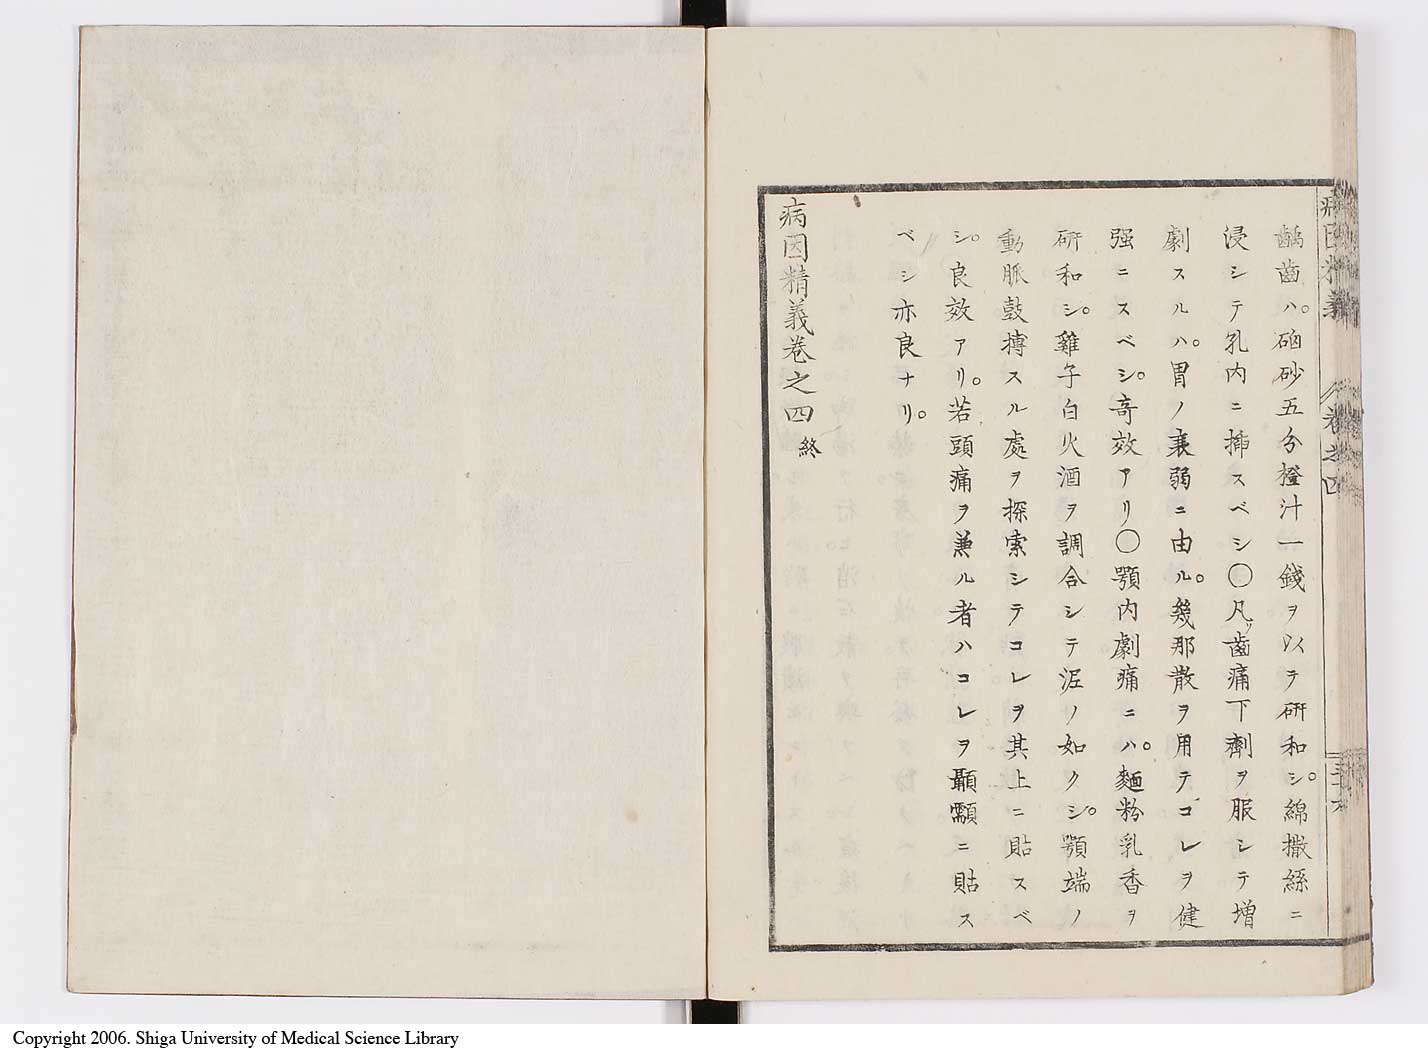 病因精義 巻之四 三十六
齲齒ハ。硇砂五分橙汁一錢ヲ以テ研和シ。綿撒絲ニ
浸シテ孔内ニ挿スベシ〇凡ソ齒痛下劑ヲ服シテ増
劇スルハ。胃ノ衰弱ニ由ル。幾那散ヲ用テコレヲ健
强ニスベシ。竒效アリ〇顎内劇痛ニハ。麵粉乳香ヲ
研和シ。雞子白火酒ヲ調合シテ泥ノ如クシ。顎端ノ
動脈鼓摶スル處ヲ探索シテコレヲ其上ニ貼スベ
シ。良效アリ。若頭痛ヲ兼ル者ハコレヲ顳顬ニ貼ス
ベシ亦良ナリ。
病因精義巻之四終
Copyright 2006. Shiga University of Medical Science Library